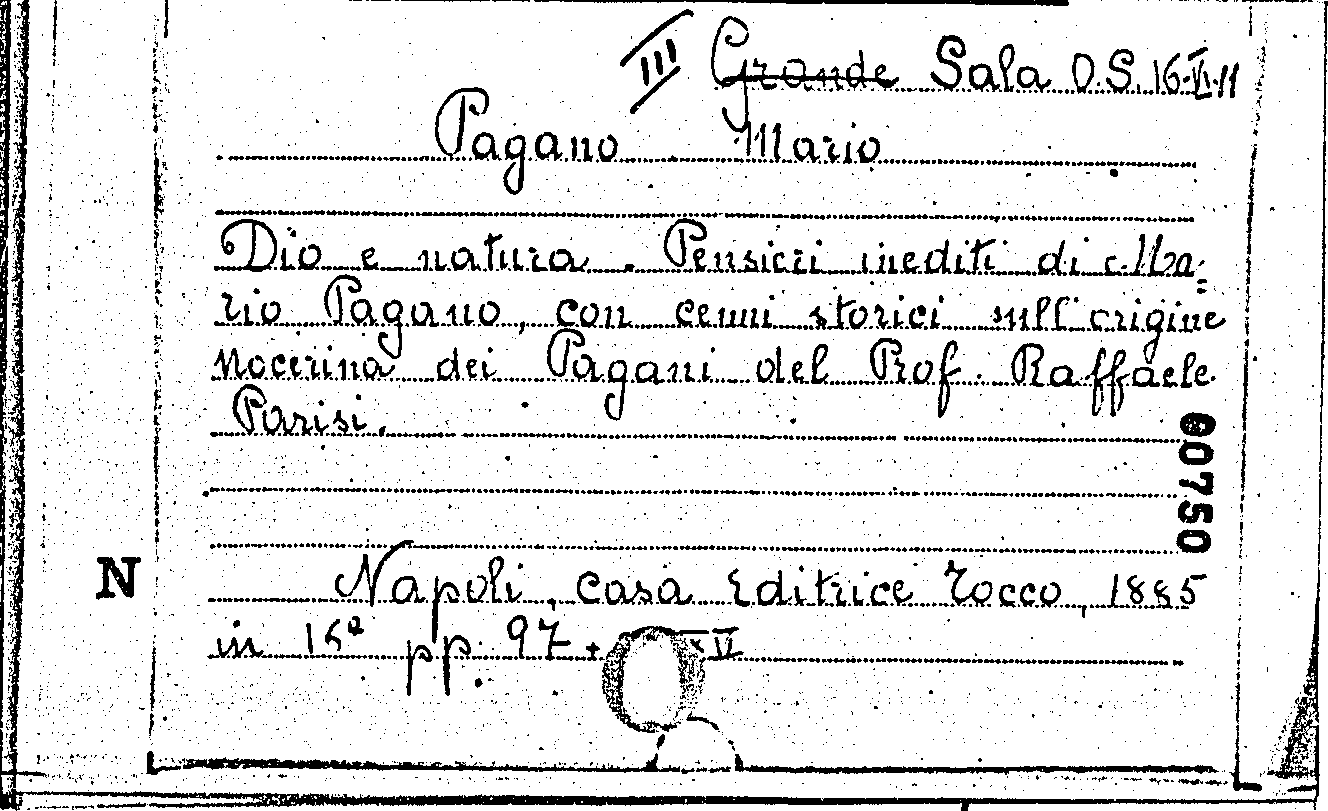 III Grande Sala O.S. 16.VI.11
Pagano Mario
Dio e natura. Pensieri inediti di Ma=
rio Pagano, con cenni storici sull'origine
nocerina dei Pagani del Prof. Raffaele
Parisi.
00750
N
Napoli, casa Editrice Tocco, 1885
in 16° pp. 97 +